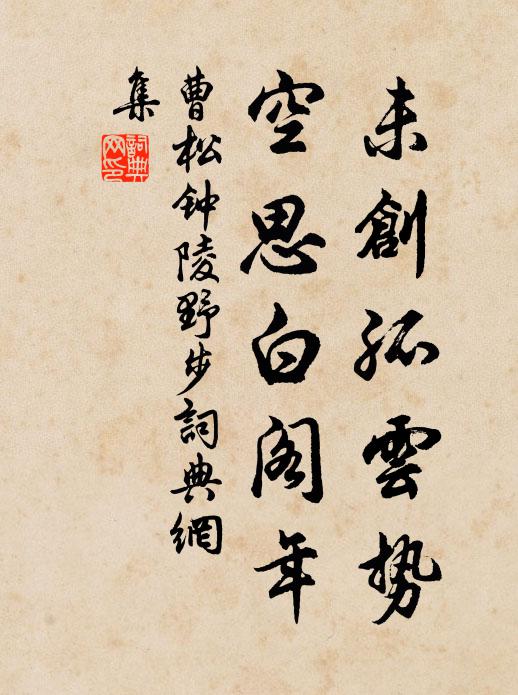 未創孤雲勢
空思白閣年
曹松钟陵野步詞典網
集
詞典
网印